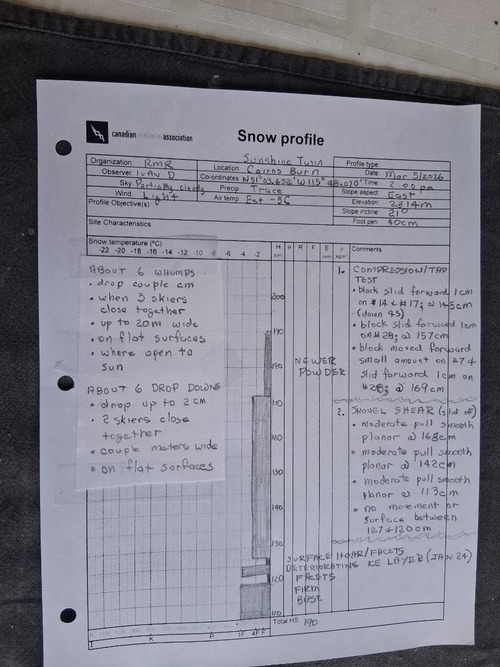 canadian
association
Snow profile
Organization: RMR
Sunshine Twin
Profile type:
Observer: IVAN D
Location: Cairns Burn
Date: Mar 5/2026
Co-ordinates: N51°03.632' W115°
Time: 2:00pm
Sky: Partially cloudy
Precip: Trace
Slope aspect: East
Wind: Light
Air temp: Est -5C
Elevation: 2214m
Slope incline: 21°
Profile Objective(s):
Foot pen: 40cm
Site Characteristics
Snow temperature (°C)
H
R
F
E
Comments
-22 -20 -18 -16 -14 -12 -10 -8 -6 -4 -2
ABOUT 6 WHUMPS
• drop couple cm
• when 3 skiers
close together
• up to 20m wide
• on flat surfaces
• where open to
sun
ABOUT 6 DROP DOWNS
• drop up to 2cm
• 2 skiers close
together
• couple meters wide
• on flat surfaces
200
190
170
160
150
120
110
NEWER
POWDER
1. COMPRESSION/TAP
TEST
• block slid forward 1cm
on #14 & #17; @ 145cm
(down 45)
• block slid forward 1cm
on #28; @ 157cm
• block moved forward
small amount on #7 &
slid forward 1cm on
#28; @ 169cm
2. SHOVEL SHEAR (slid off)
• moderate pull smooth
planar @ 168cm
• moderate pull smooth
planar @ 142cm
• moderate pull smooth
planar @ 113cm
• no movement or
surface between
127 & 120cm
SURFACE HOAR/FACETS
DETERIORATING ICE LAYER (JAN 24)
FACETS
FIRM
BASE
Total HS 190
T K P 1F 4F F